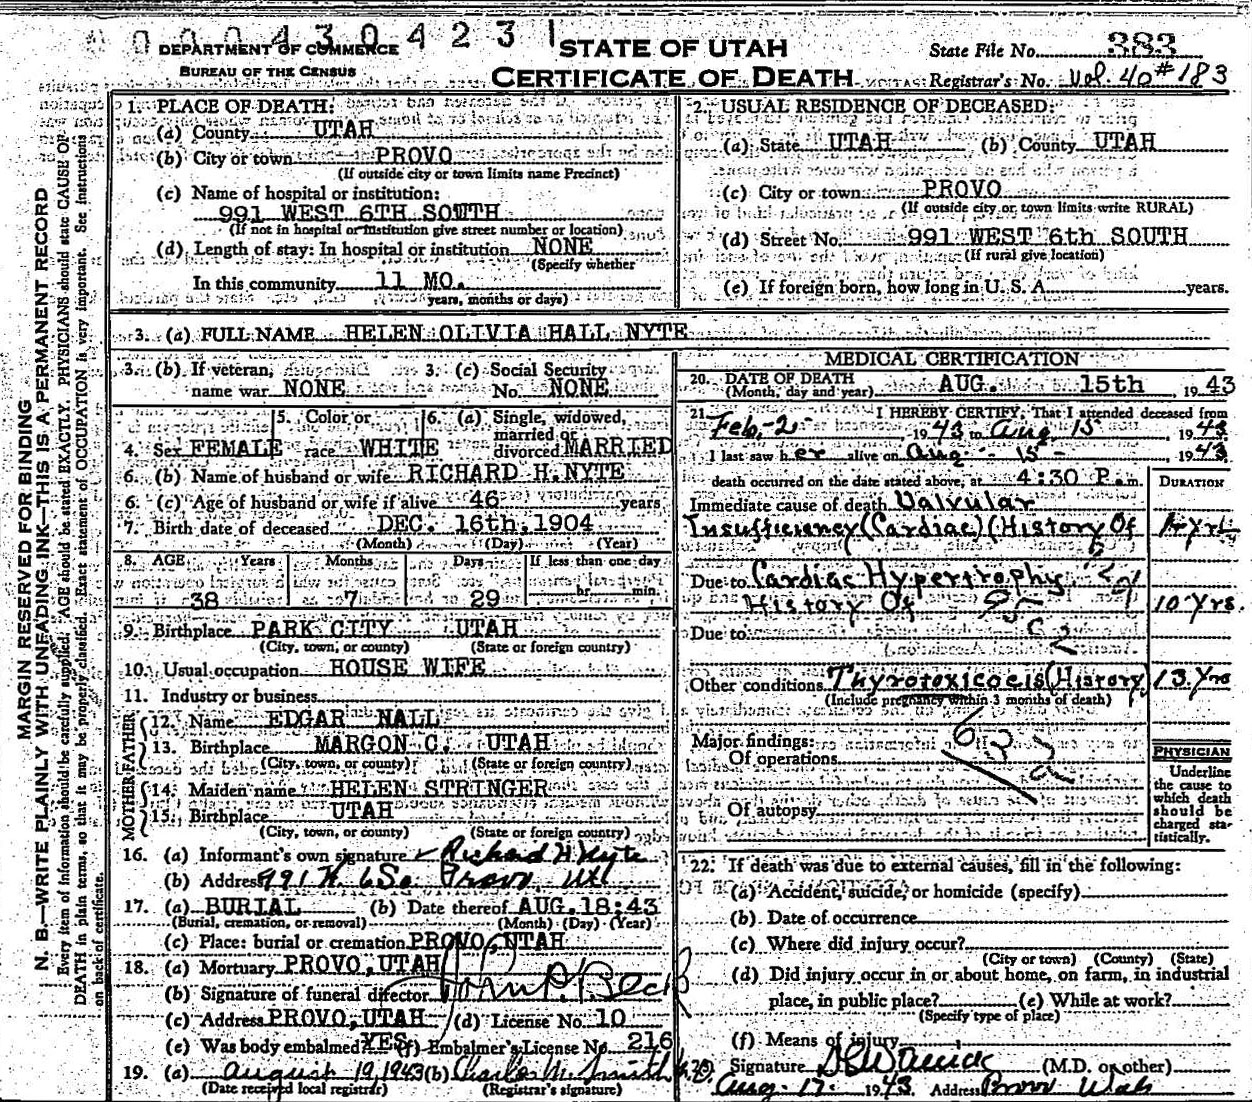 0004304231
DEPARTMENT OF COMMERCE
BUREAU OF THE CENSUS
STATE OF UTAH
CERTIFICATE OF DEATH
State File No. 383
Registrar's No. Vol. 40 #183
MARGIN RESERVED FOR BINDING
N. B.—WRITE PLAINLY WITH UNFADING INK—THIS IS A PERMANENT RECORD
Every item of information should be carefully supplied. AGE should be stated EXACTLY. PHYSICIANS should state CAUSE OF
DEATH in plain terms, so that it may be properly classified. Exact statement of OCCUPATION is very important. See instructions
on back of certificate.
1. PLACE OF DEATH:
(a) County UTAH
(b) City or town PROVO
(If outside city or town limits name Precinct)
(c) Name of hospital or institution:
991 WEST 6TH SOUTH
(If not in hospital or institution give street number or location)
(d) Length of stay: In hospital or institution NONE
(Specify whether
In this community 11 MO.
years, months or days)
2. USUAL RESIDENCE OF DECEASED:
(a) State UTAH (b) County UTAH
(c) City or town PROVO
(If outside city or town limits write RURAL)
(d) Street No. 991 WEST 6th SOUTH
(If rural give location)
(e) If foreign born, how long in U. S. A. years.
3. (a) FULL NAME HELEN OLIVIA HALL NYTE
3. (b) If veteran, name war NONE
3. (c) Social Security No. NONE
4. Sex FEMALE
5. Color or race WHITE
6. (a) Single, widowed, married or divorced MARRIED
6. (b) Name of husband or wife RICHARD H. NYTE
6. (c) Age of husband or wife if alive 46 years
7. Birth date of deceased DEC. 16th, 1904
(Month) (Day) (Year)
8. AGE Years Months Days If less than one day
38 7 29 hr. min.
9. Birthplace PARK CITY UTAH
(City, town, or county) (State or foreign country)
10. Usual occupation HOUSE WIFE
11. Industry or business
FATHER
12. Name EDGAR NALL
13. Birthplace MARGON C. UTAH
(City, town, or county) (State or foreign country)
MOTHER
14. Maiden name HELEN STRINGER
15. Birthplace UTAH
(City, town, or county) (State or foreign country)
16. (a) Informant's own signature Richard H Nyte
(b) Address 991 W. 6 So. Provo, Ut
17. (a) BURIAL (b) Date thereof AUG. 18:43
(Burial, cremation, or removal) (Month) (Day) (Year)
(c) Place: burial or cremation PROVO, UTAH
18. (a) Mortuary PROVO, UTAH
(b) Signature of funeral director John P. Beck
(c) Address PROVO, UTAH (d) License No. 10
(e) Was body embalmed YES (f) Embalmer's License No. 216
19. (a) August 19, 1943 (b) Charles M. Smith M.D.
(Date received local registrar) (Registrar's signature)
MEDICAL CERTIFICATION
20. DATE OF DEATH AUG. 15th 1943
(Month, day and year)
21. I HEREBY CERTIFY, That I attended deceased from
Feb. 2 1943 to Aug 15, 1943
I last saw her alive on Aug 15, 1943
death occurred on the date stated above, at 4:30 P.m.
DURATION
Immediate cause of death Valvular
Insufficiency (Cardiac) (History Of
Due to Cardiac Hypertrophy
History Of 10 Yrs.
95c
2
Due to
Other conditions Thyrotoxicocis (History) 13 Yrs
(Include pregnancy within 3 months of death)
Major findings:
Of operations
632
Of autopsy
PHYSICIAN
Underline
the cause to
which death
should be
charged sta-
tistically.
22. If death was due to external causes, fill in the following:
(a) Accident, suicide, or homicide (specify)
(b) Date of occurrence
(c) Where did injury occur?
(City or town) (County) (State)
(d) Did injury occur in or about home, on farm, in industrial
place, in public place? (e) While at work?
(Specify type of place)
(f) Means of injury
23. Signature (M.D. or other)
Aug. 17 1943 Address Provo Utah